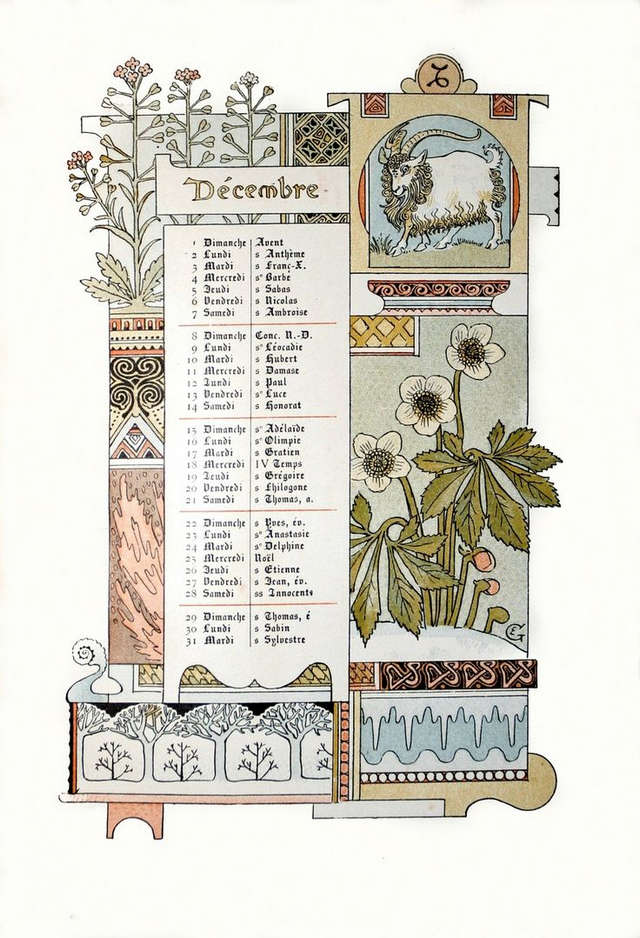 Décembre
1 Dimanche Avent
2 Lundi s Anthème
3 Mardi s Franç-X.
4 Mercredi sᵉ Barbe
5 Jeudi s Sabas
6 Vendredi s Nicolas
7 Samedi s Ambroise
8 Dimanche Conc. N.-D.
9 Lundi sᵉ Léocadie
10 Mardi s Hubert
11 Mercredi s Damase
12 Lundi s Paul
13 Vendredi sᵉ Luce
14 Samedi s Honorat
15 Dimanche sᵉ Adélaïde
16 Lundi sᵉ Olimpie
17 Mardi s Gratien
18 Mercredi IV Temps
19 Jeudi s Grégoire
20 Vendredi s Philogone
21 Samedi s Thomas, a.
22 Dimanche s Yves, év.
23 Lundi sᵉ Anastasie
24 Mardi sᵉ Delphine
25 Mercredi Noël
26 Jeudi s Etienne
27 Vendredi s Jean, év.
28 Samedi ss Innocents
29 Dimanche s Thomas, é
30 Lundi s Sabin
31 Mardi s Sylvestre
EG